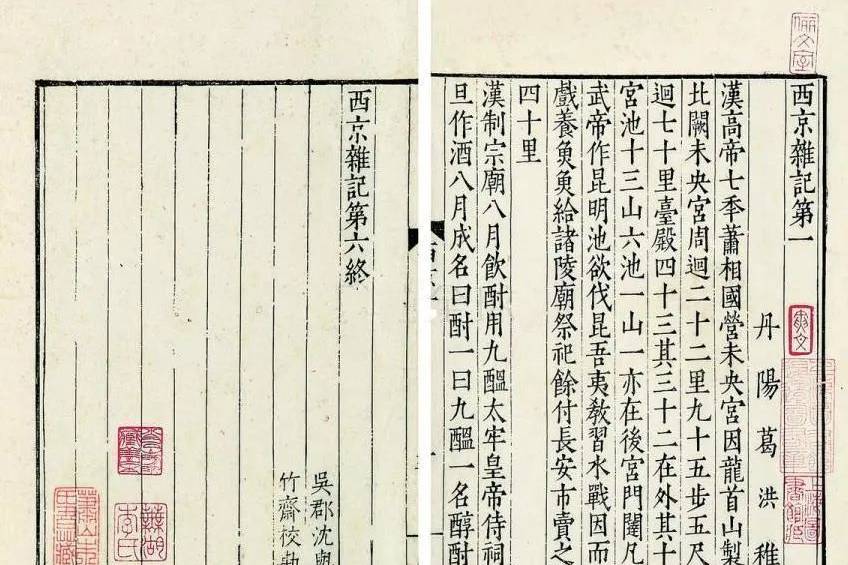 西京雜記第一
丹陽葛洪稚
漢高帝七季蕭相國營未央宮因龍首山製
北闕未央宮周迴二十二里九十五步五尺
迴七十里臺殿四十三其三十二在外其十
宮池十三山六池一山一亦在後宮門闥凡
武帝作昆明池欲伐昆吾夷教習水戰因而
戲養魚魚給諸陵廟祭祀餘付長安市賣之
四十里
漢制宗廟八月飲酎用九醞太牢皇帝侍祠
旦作酒八月成名曰酎一曰九醞一名醇酎
西京雜記第六終
吳郡沈與
竹齋校勘
蕪湖
李氏